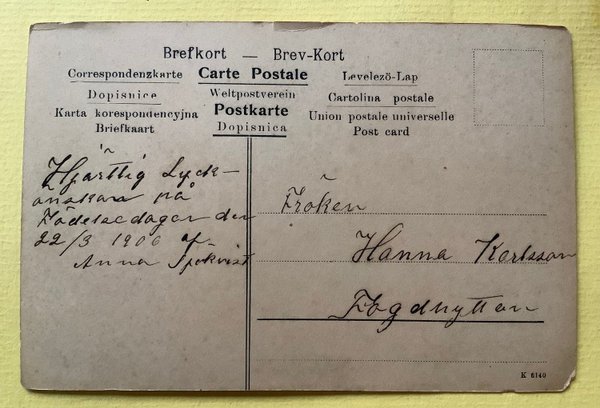 Brefkort — Brev-Kort
Correspondenzkarte Carte Postale Levelező-Lap
Dopisnice Weltpostverein Cartolina postale
Karta korespondencyjna Postkarte Union postale universelle
Briefkaart Dopisnica Post card
Hjärttlig Lyck-
önskan på
Födelsedagen den
22/3 1906 af
Anna
Fröken
Hanna Karlsson
Fogdhyttan
K 6140